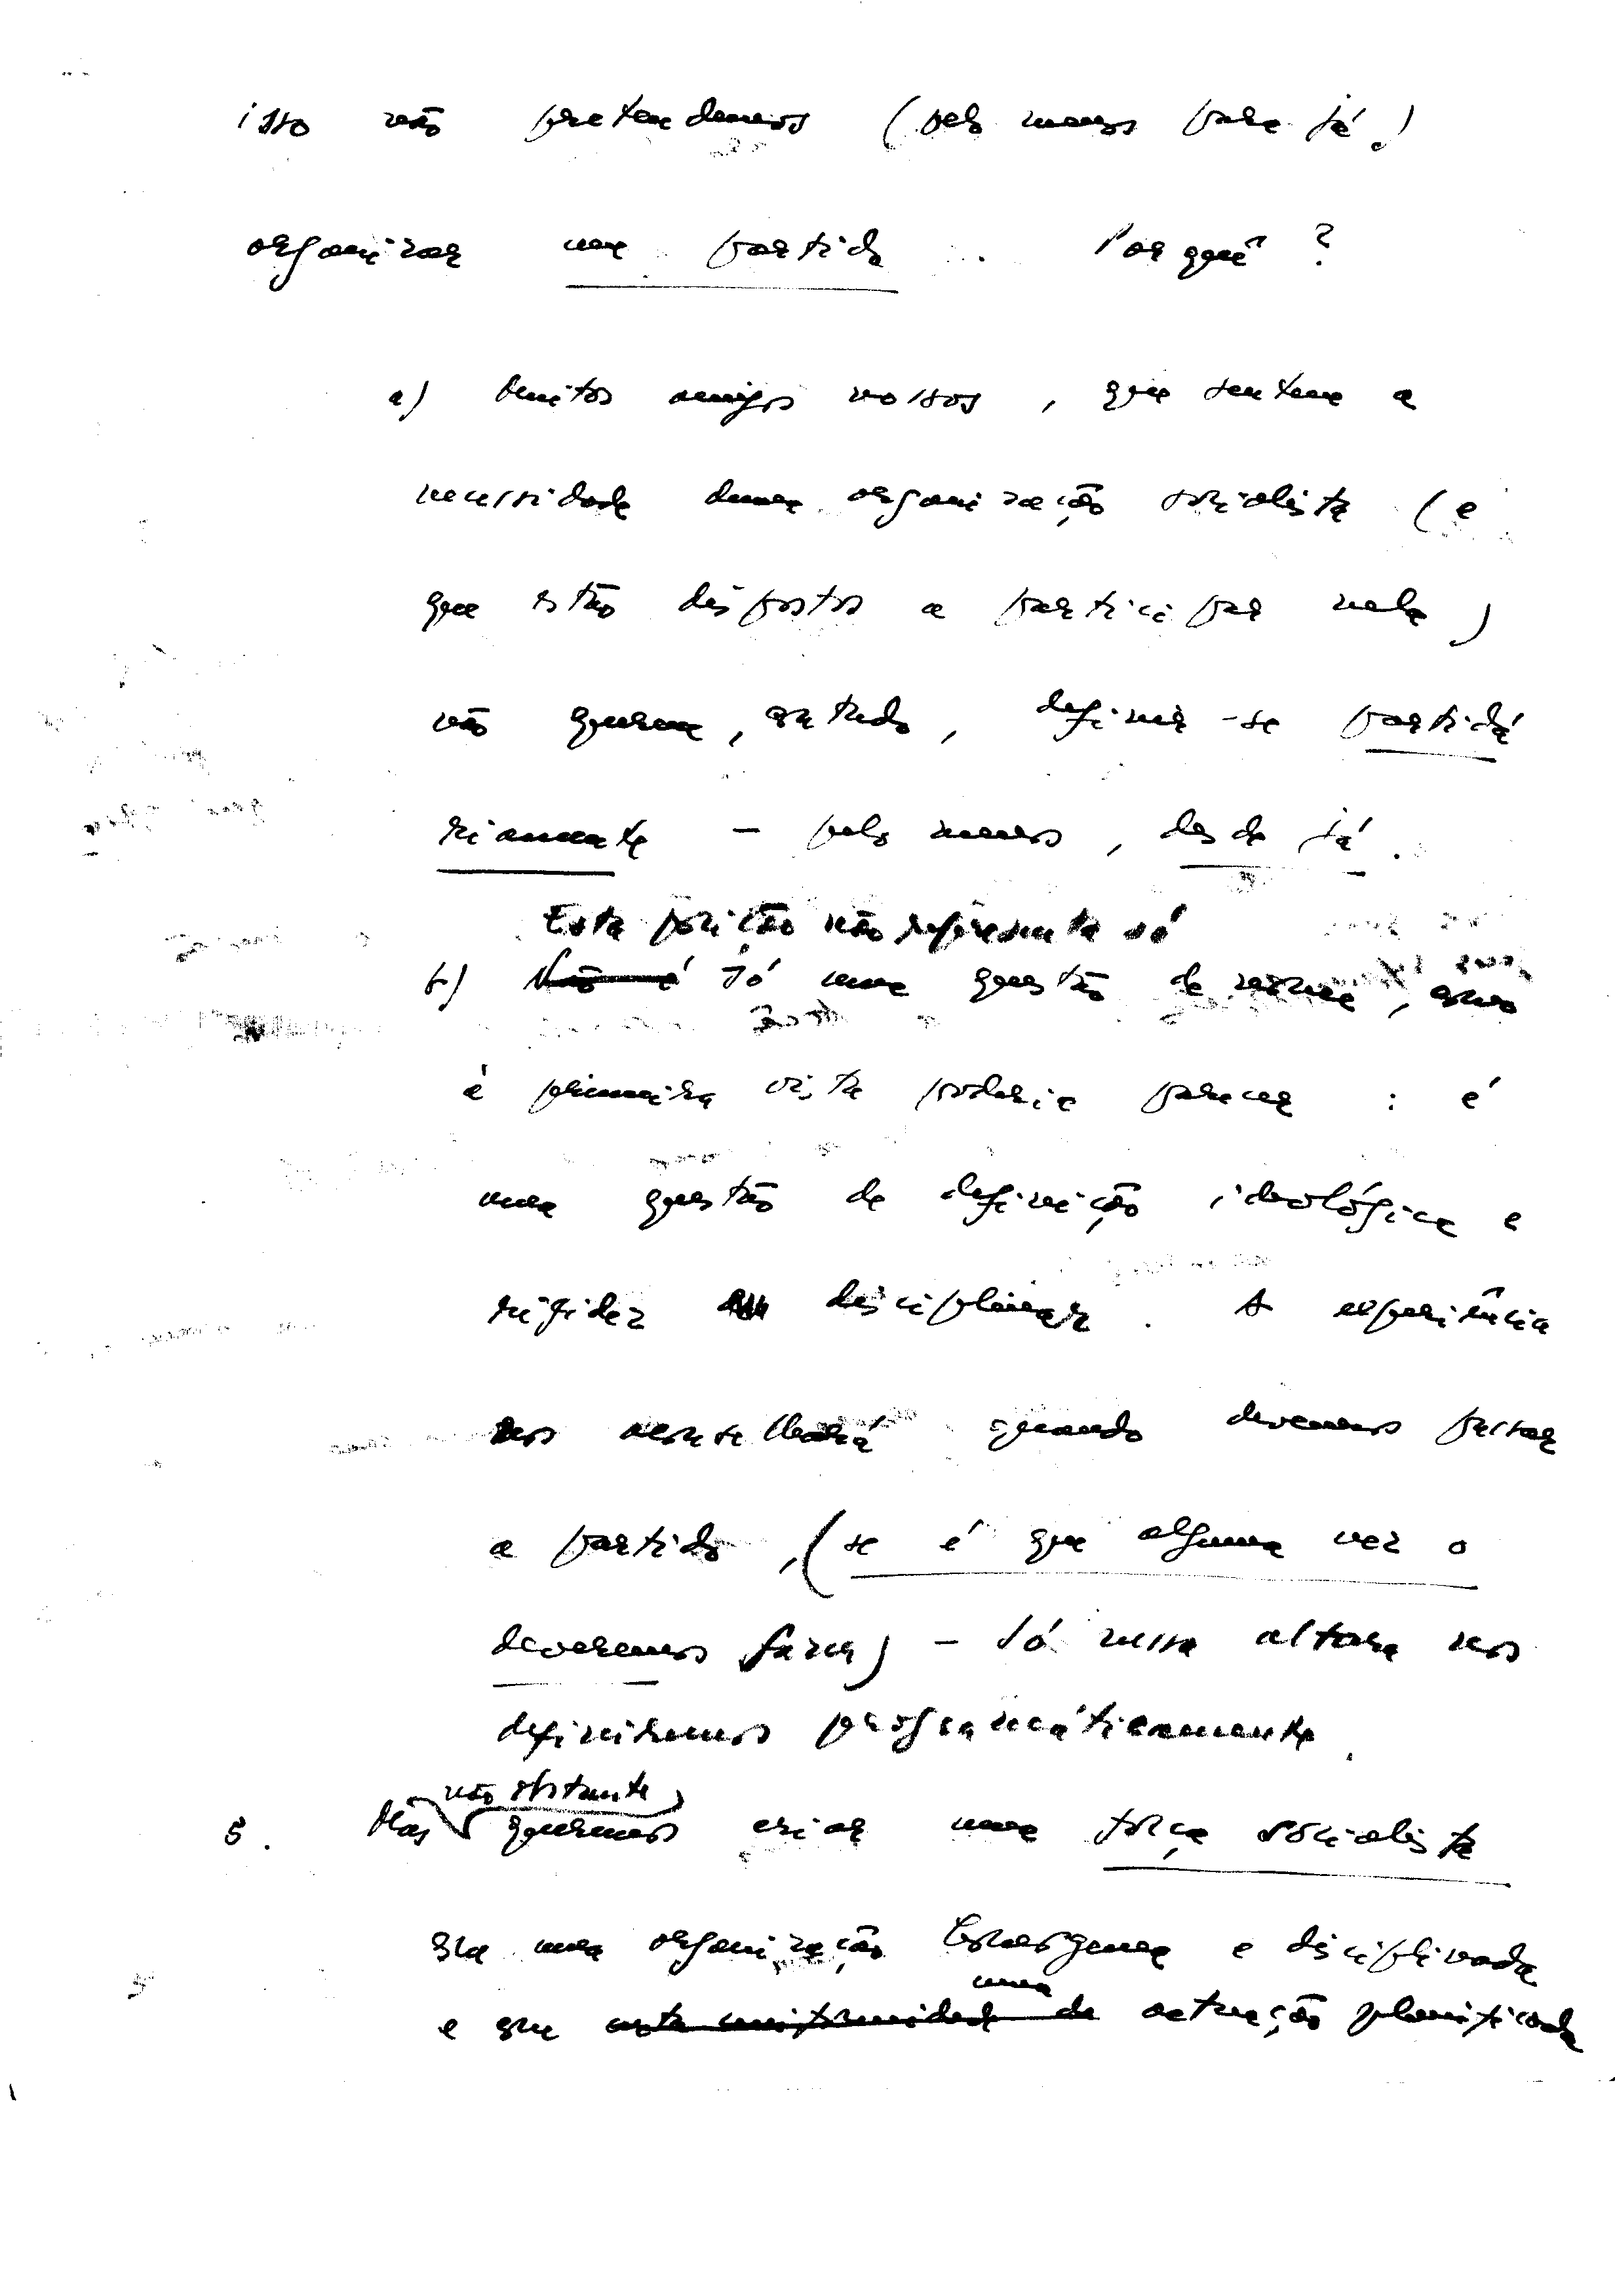 isso não pretendemos (pelo menos para já)
organizar um partido. Porquê?
a) Muitos amigos nossos, que sentem a
necessidade duma organização socialista (e
que estão dispostos a participar nela)
não querem, contudo, definir-se partidá
riamente — pelo menos, desde já.
Esta posição não representa só
b) Não é só uma questão de nome, como
à primeira vista poderia parecer: é
uma questão de definição ideológica e
rigidez disciplinar. A experiência
nos aconselhará quando devemos passar
a partido, (se é que alguma vez o
deveremos fazer) — Só nessa altura nos
definiremos programáticamente.
não obstante
5. Mas queremos criar uma força socialista
com uma organização homogénea e disciplinada
uma
e com certa uniformidade de actuação planificada